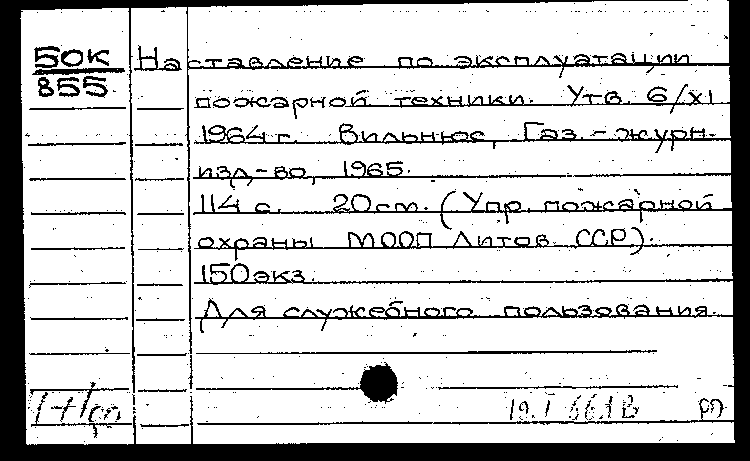 50К
855
Наставление по эксплуатации
пожарной техники. Утв. 6/XI
1964 г. Вильнюс, Газ.-журн.
изд-во, 1965.
114 с. 20 см. (Упр. пожарной
охраны МООП Литов. ССР).
150 экз.
Для служебного пользования.